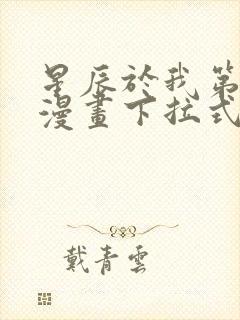 星辰於我第
漫畫下拉式
戴青雲